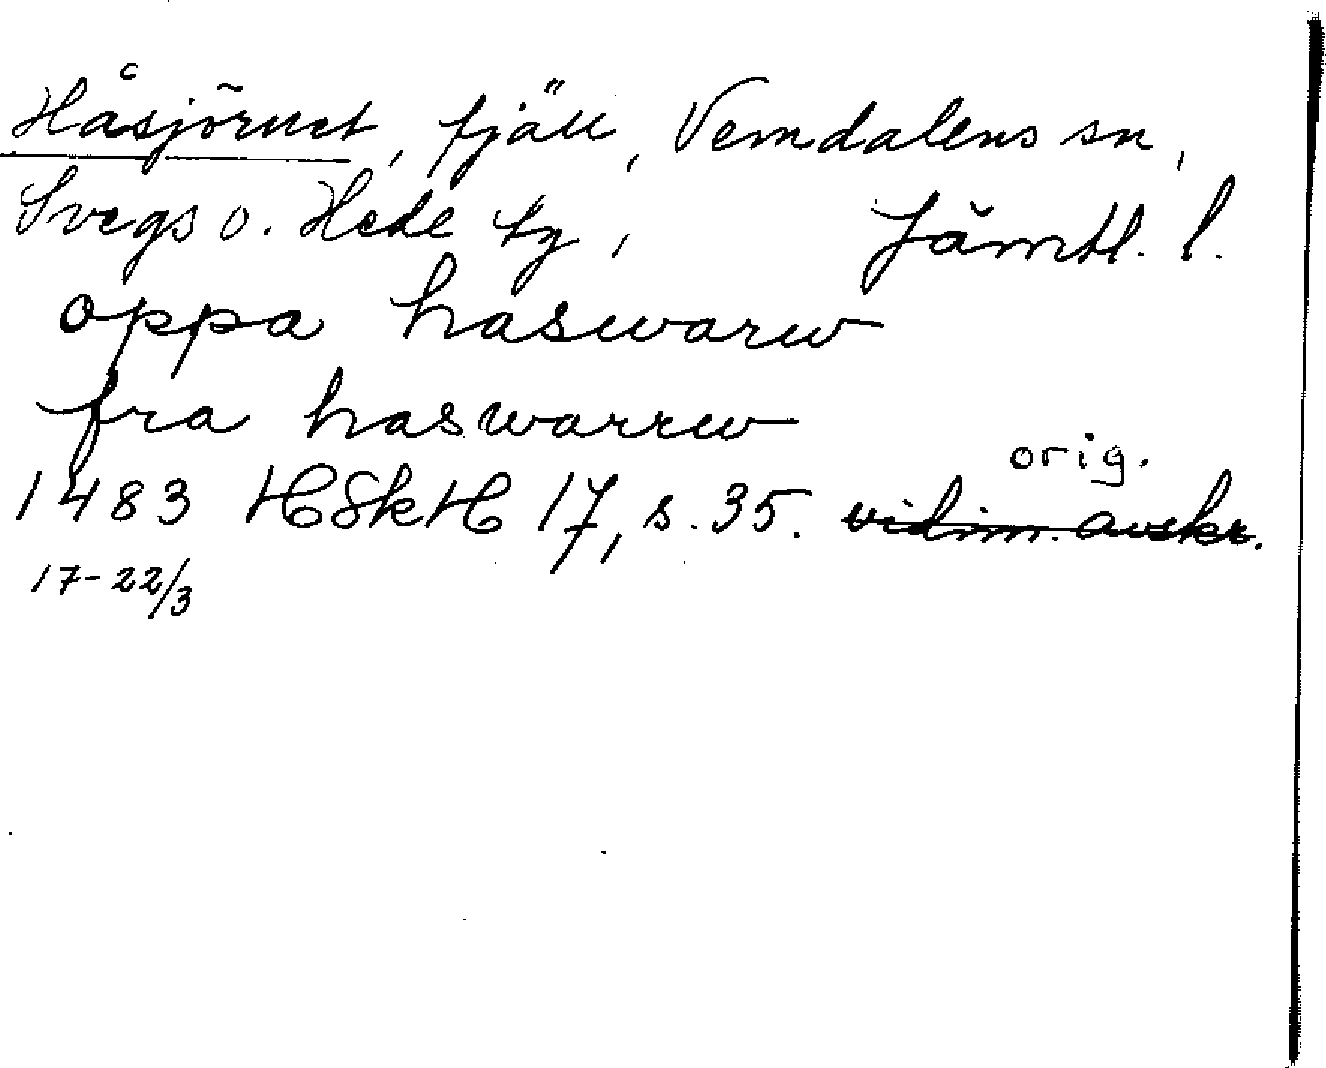 Håsjöruet, fjäll, Vemdalens sn,
Svegs o. Hede tg, Jämtl. l.
oppa haswarw
fra haswarrw
orig.
1483 HSkH 17, s. 35. vidim. avskr.
17-22/3